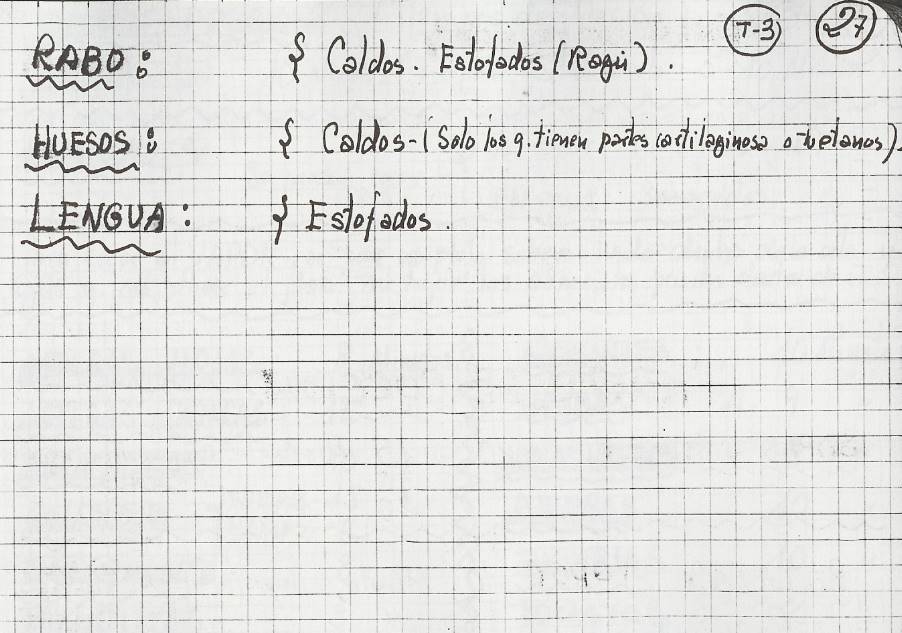 T-3 27
RABO: { Caldos. Estofados (Ragú).
HUESOS: { Caldos-(Solo los q. tienen partes cartilaginosa o tuetanos).
LENGUA: } Estofados.